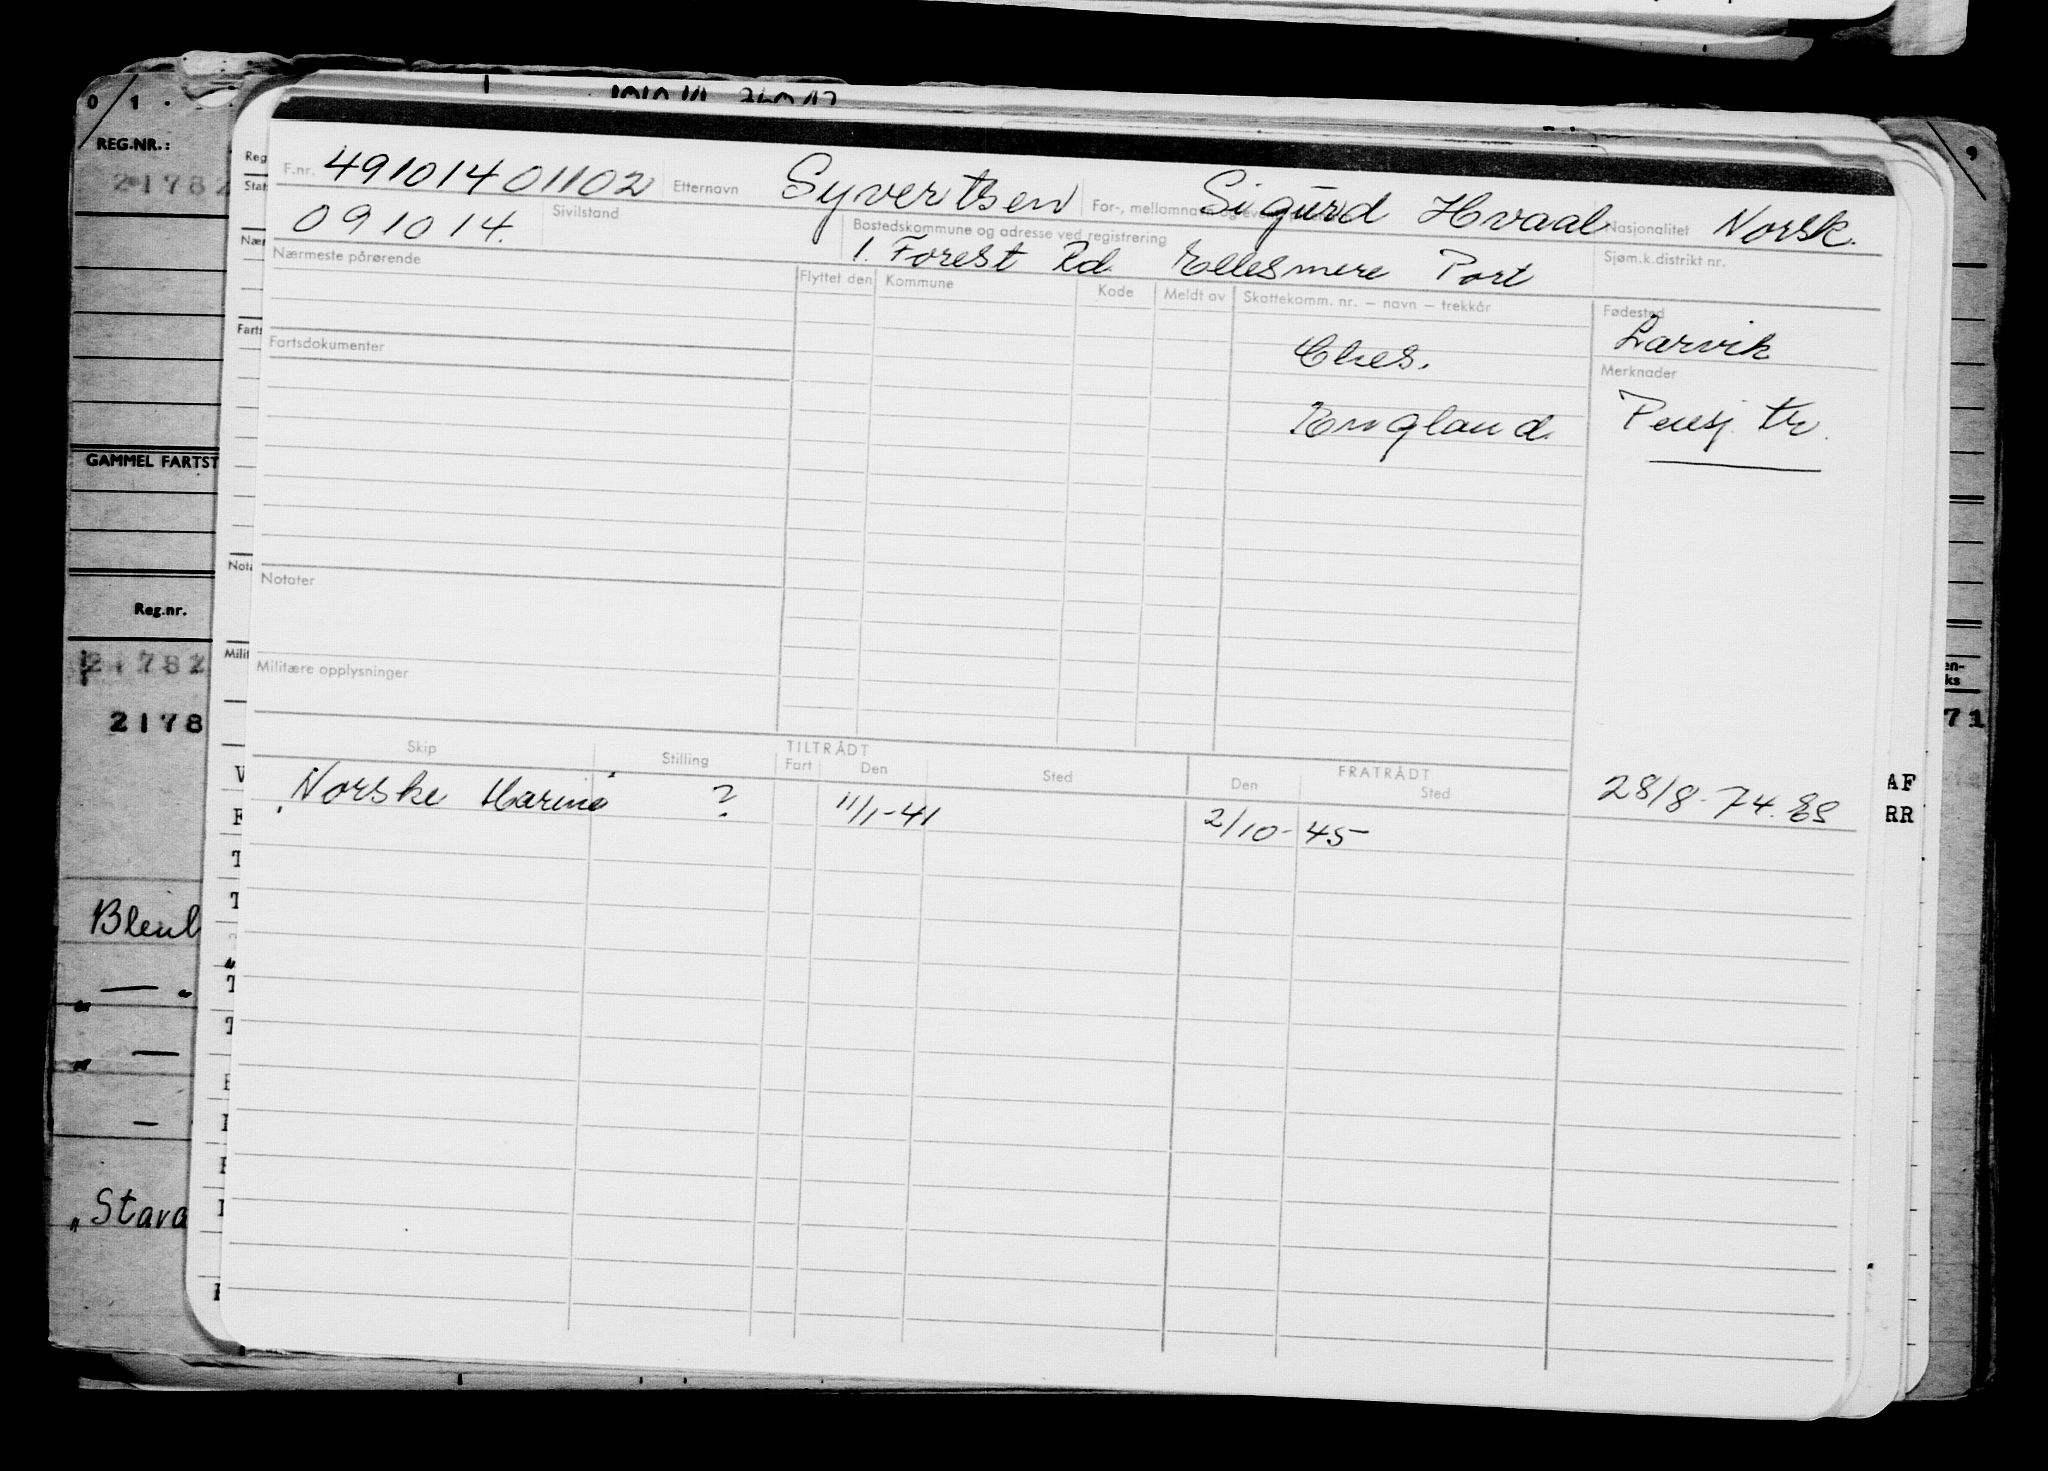 0 1
9
REG.NR.:
2178
GAMMEL FARTST
Reg.nr.
21782
2178
Blenh
„ — "
„ —
—
„Stava
Reg
Stat
Nær
Farts
Nota
Milit
en-
ks
71
AF
RR
F.nr. 49101401102 Etternavn Syvertsen For-, mellomnavn og Sigurd Hvaal Nasjonalitet Norsk.
091014. Sivilstand Bostedskommune og adresse ved registrering Sjøm.k.distrikt nr.
1. Forest Rd. Ellesmere Port
Nærmeste pårørende Flyttet den Kommune Kode Meldt av Skattekomm. nr. – navn – trekkår Fødested
Ches. Larvik
Fartsdokumenter Merknader
England. Pensj. tr.
Notater
Militære opplysninger
Skip Stilling TILTRÅDT FRATRÅDT
Fart Den Sted Den Sted
Norske Marine ? 11/1-41 2/10-45 28/8-74. ES